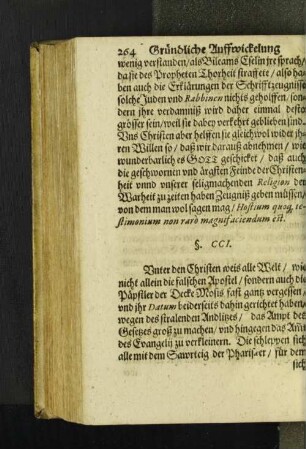 264 Gründliche Auffwickelung
wenig verstanden/als Bileams Eselin jre sprach/
da sie des Propheten Thorheit straffete/also ha-
ben auch die Erklärungen der Schrifftzeugnisse
solche Juden und Rabbinen nichts geholffen/son-
dern jhre verdamniß wird daher einmal desto
grösser sein/weil sie dabey verkehrt geblieben sind.
Uns Christen aber helffen sie gleichwol wider jh-
ren Willen so/daß wir darauß abnehmen/wie
wunderbarlich es GOTT geschicket/daß auch
die geschwornen und ärgsten Feinde der Christen-
heit vnnd unserer seligmachenden Religion der
Warheit zu zeiten haben Zeugniß geben müssen/
von dem man wol sagen mag/Hostium quoq; te-
stimonium non rarò magnifaciendum est.
§. CCI.
Vnter den Christen weis alle Welt/wie
nicht allein die falschen Apostel/sondern auch die
Päpstler der Decke Mosis fast gantz vergessen/
und jhr Datum beiderseits dahin gerichtet haben/
wegen des stralenden Andlitzes/das Ampt des
Gesetzes groß zu machen/und hingegen das
des Evangelij zu verkleinern. Die schleppen sich
alle mit dem Sawrteig der Phariseer/für dem
sich